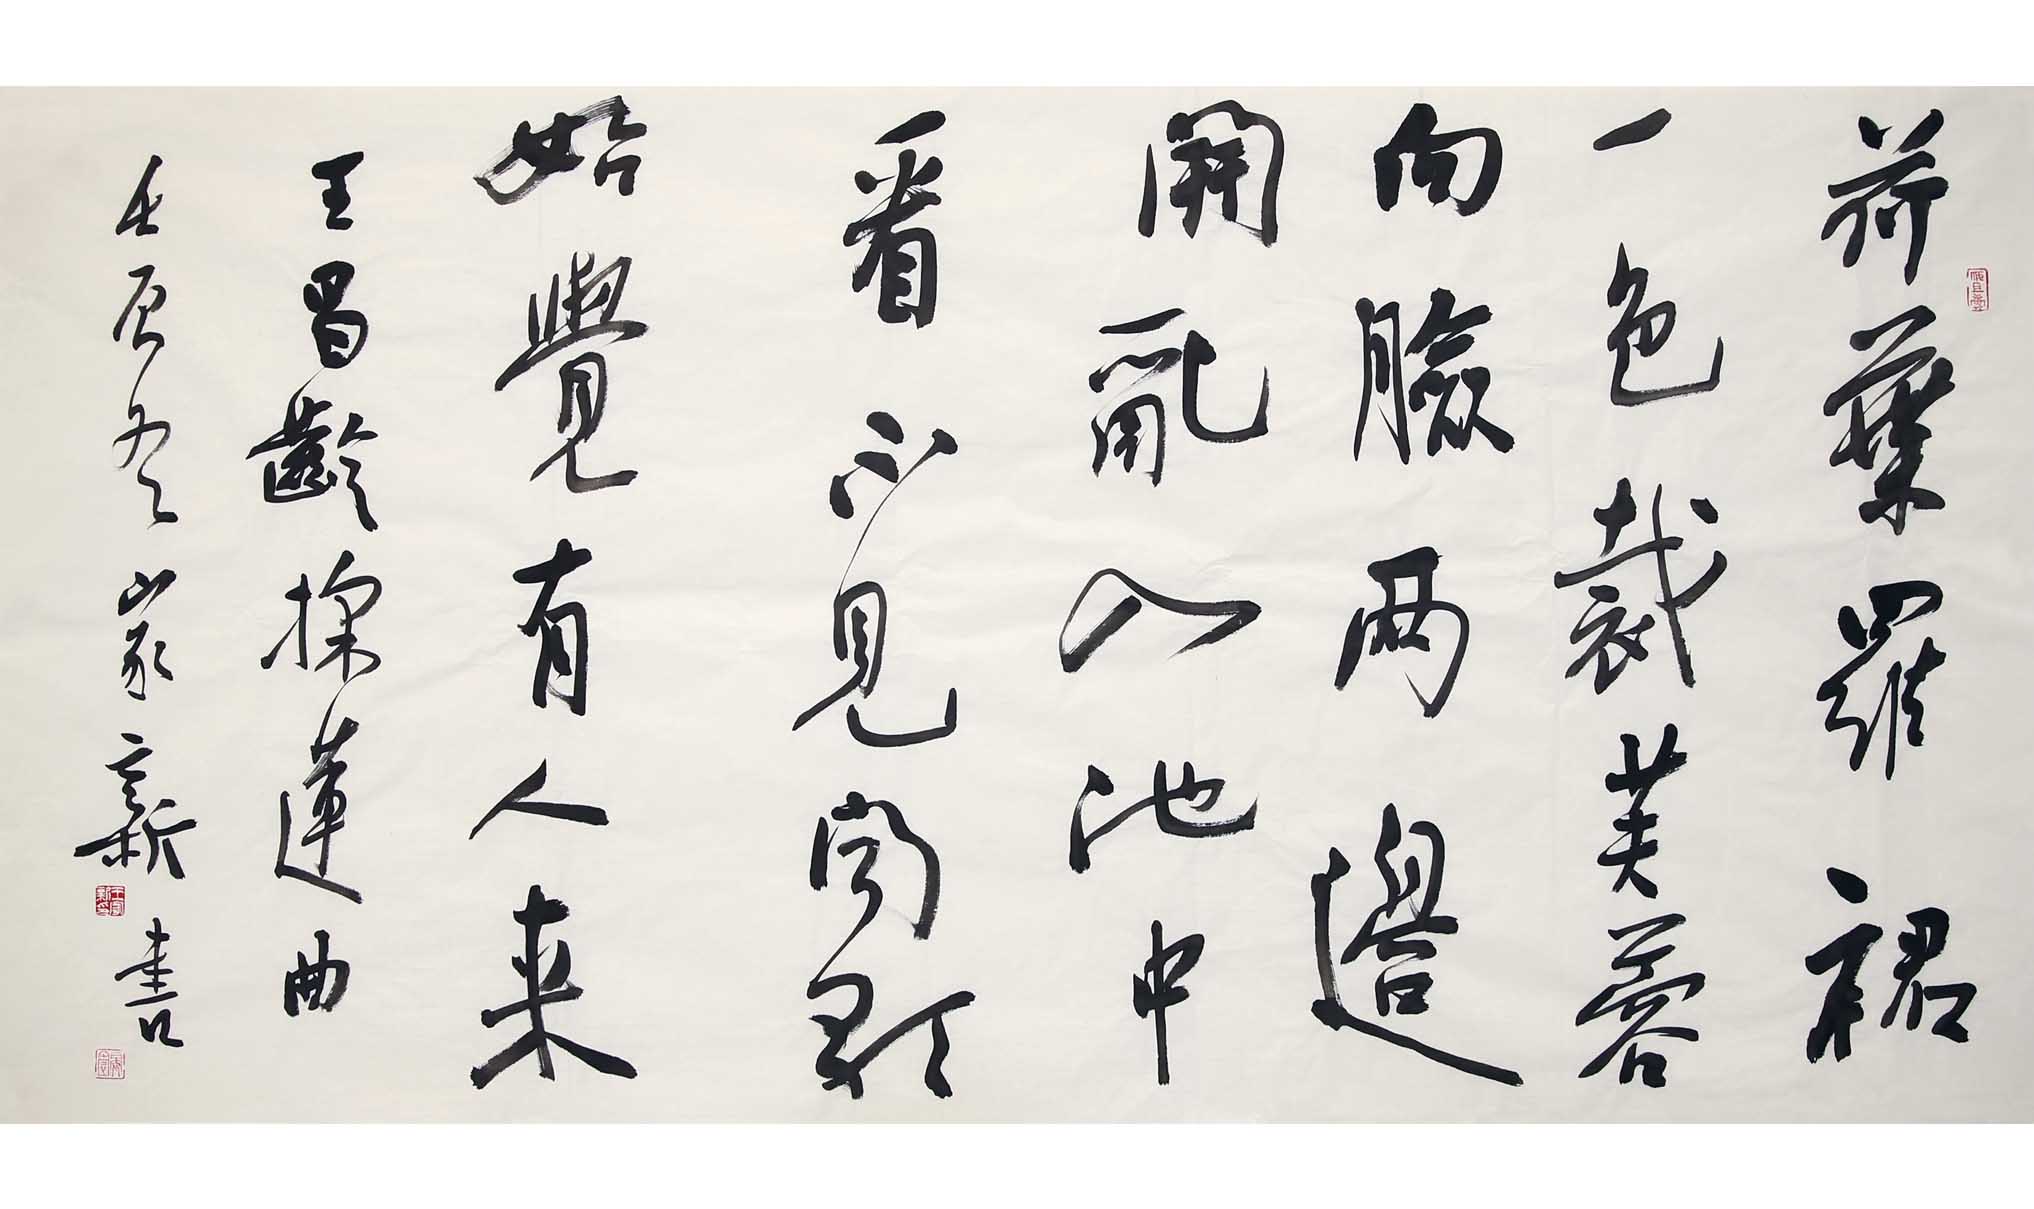 荷葉羅裙
一色裁芙蓉
向臉兩邊
開亂入池中
看不見聞歌
始覺有人来
王昌齡採蓮曲
壬辰冬家新書